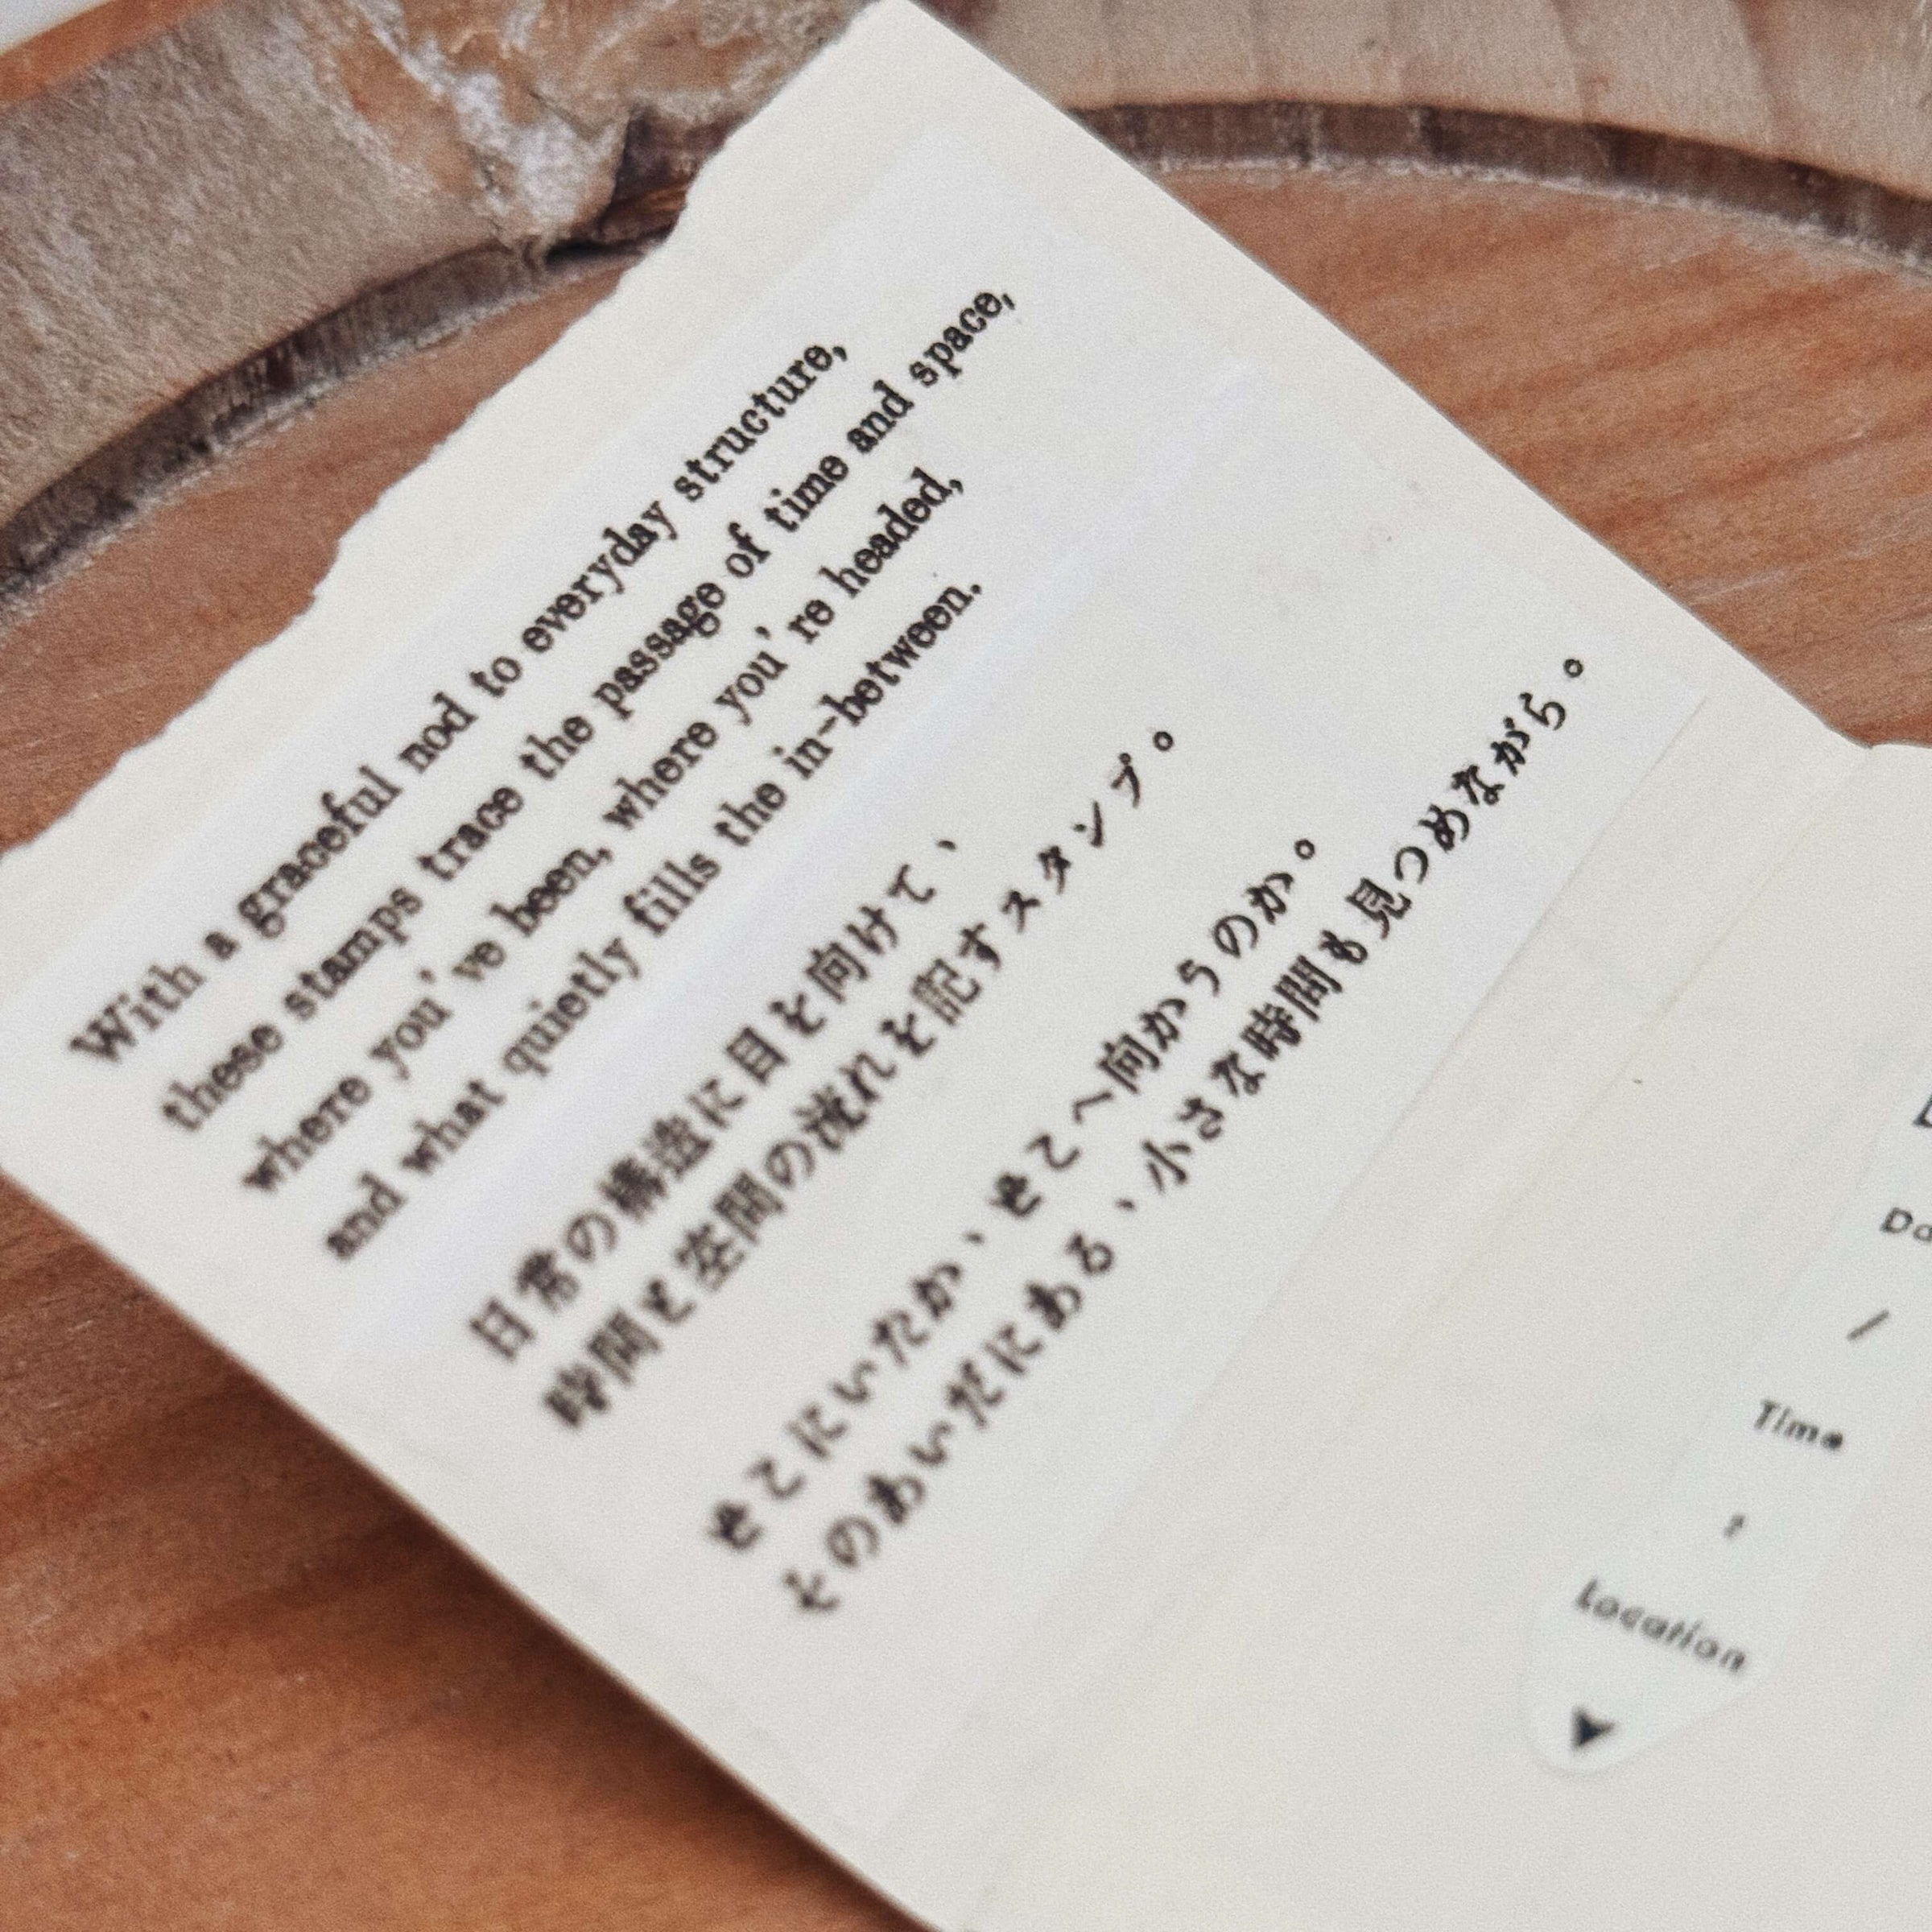 With a graceful nod to everyday structure,
these stamps trace the passage of time and space,
where you've been, where you're headed,
and what quietly fills the in-between.
日常の構造に目を向けて、
時間と空間の流れを記すスタンプ。
そこにいたか、そこへ向かうのか。
そのあいだにある、小さな時間も見つめながら。
/
Time
Location